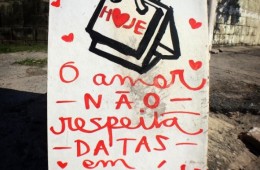 HOJE
O amor
NÃO
respeita
DATAS
em